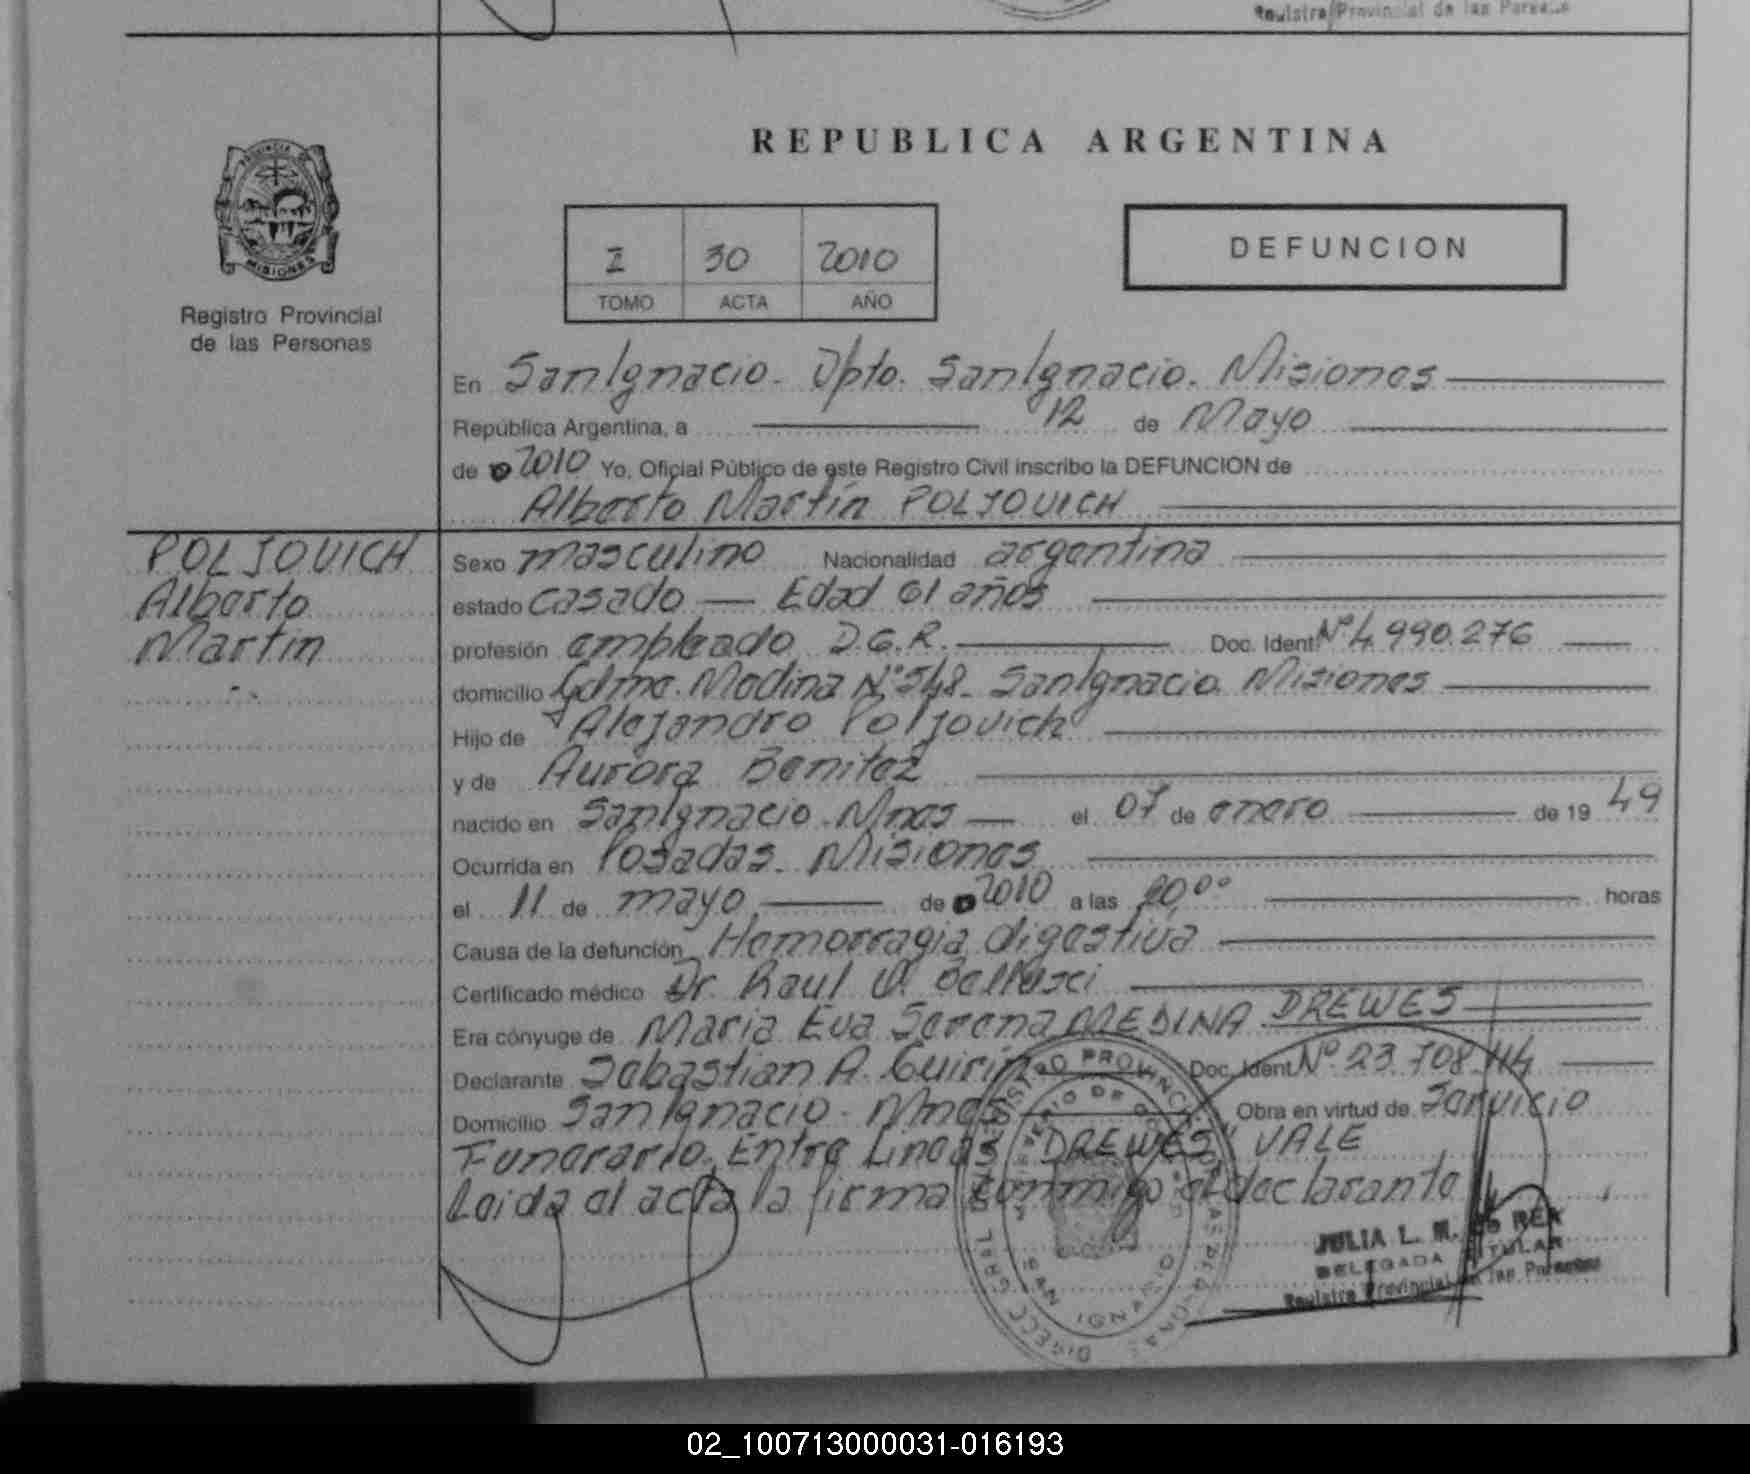 Registro Provincial de las Personas
PROVINCIA DE
MISIONES
Registro Provincial
de las Personas
REPUBLICA ARGENTINA
I 30 2010
TOMO ACTA AÑO
DEFUNCION
En SanIgnacio. Dpto. SanIgnacio. Misiones
República Argentina, a 12 de Mayo
de 2010 Yo, Oficial Público de este Registro Civil inscribo la DEFUNCION de
Alberto Martín POLJOVICH
POLJOVICH
Alberto
Martín
Sexo masculino Nacionalidad argentina
estado casado — Edad 61 años
profesión empleado D.G.R. Doc. Ident. Nº 4.990.276
domicilio Gdme. Medina Nº 548 - SanIgnacio. Misiones
Hijo de Alejandro Poljovich
y de Aurora Benitez
nacido en SanIgnacio - Mnes — el 07 de enero de 19 49
Ocurrida en Posadas. Misiones
el 11 de mayo de 2010 a las 20,00 horas
Causa de la defunción Hemorragia digestiva
Certificado médico Dr. Raul V. Bellusci
Era cónyuge de Maria Eva Serena MEDINA DREWES
Declarante Sebastian A. Guirin Doc. Ident. Nº 23.708.
Domicilio San Ignacio - Mnes Obra en virtud de Servicio
Funerario. Entre Lineas "DREWES" VALE
Leida el acta la firma conmigo el declarante
JULIA L. M. de REX
DELEGADA TITULAR
Registro Provincial de las Personas
SAN IGNACIO
02_100713000031-016193